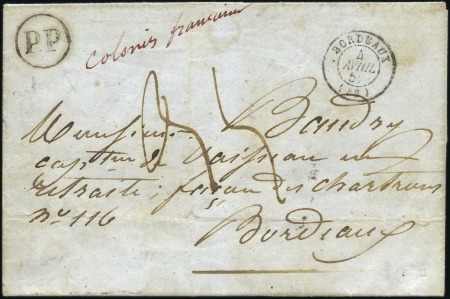 PP
colonies françaises
BORDEAUX
4
AVRIL
Monsieur Baudry
capitne de vaisseau en
retraite; façade des chartrons
No 116
Bordeaux